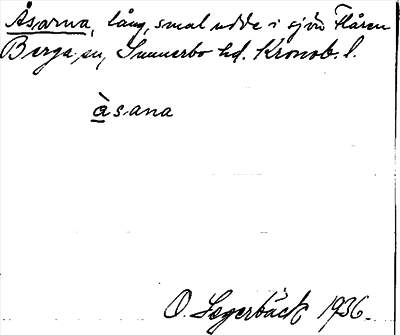 Åsarna, lång, smal udde i sjön Flåren
Berga sn, Sunnerbo hd. Kronob. l.
àsana
O. Segerbäck 1936.